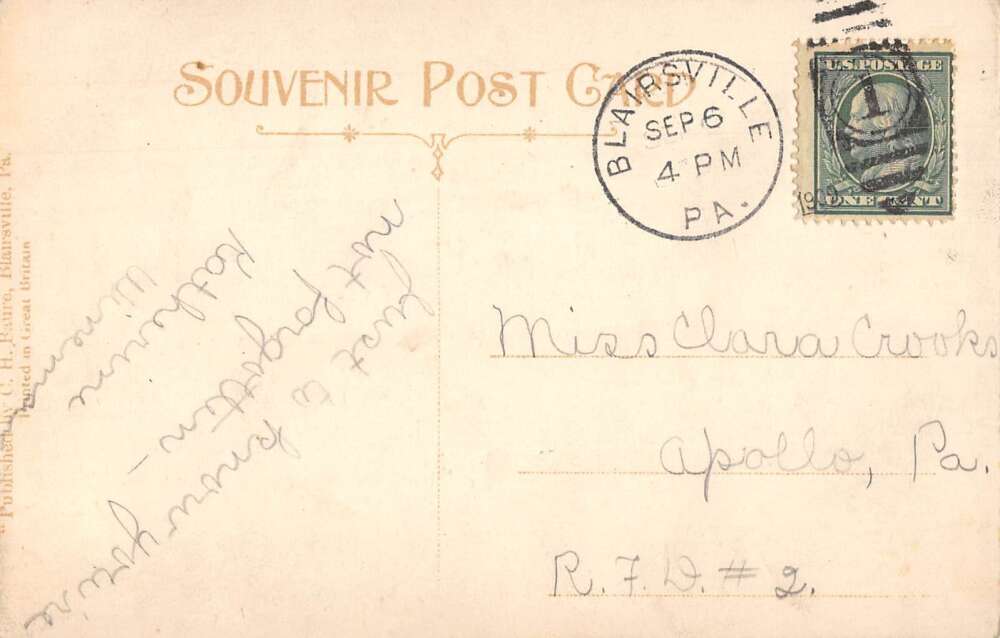 SOUVENIR POST CARD
BLAIRSVILLE
SEP 6
4 PM
PA.
U.S. POSTAGE
1
ONE CENT
Just to know you're
not forgotten –
Katherine
Miss Clara Crooks
Apollo, Pa.
R.F.D. # 2.
Published by C. H. Faure, Blairsville, Pa.
Printed in Great Britain